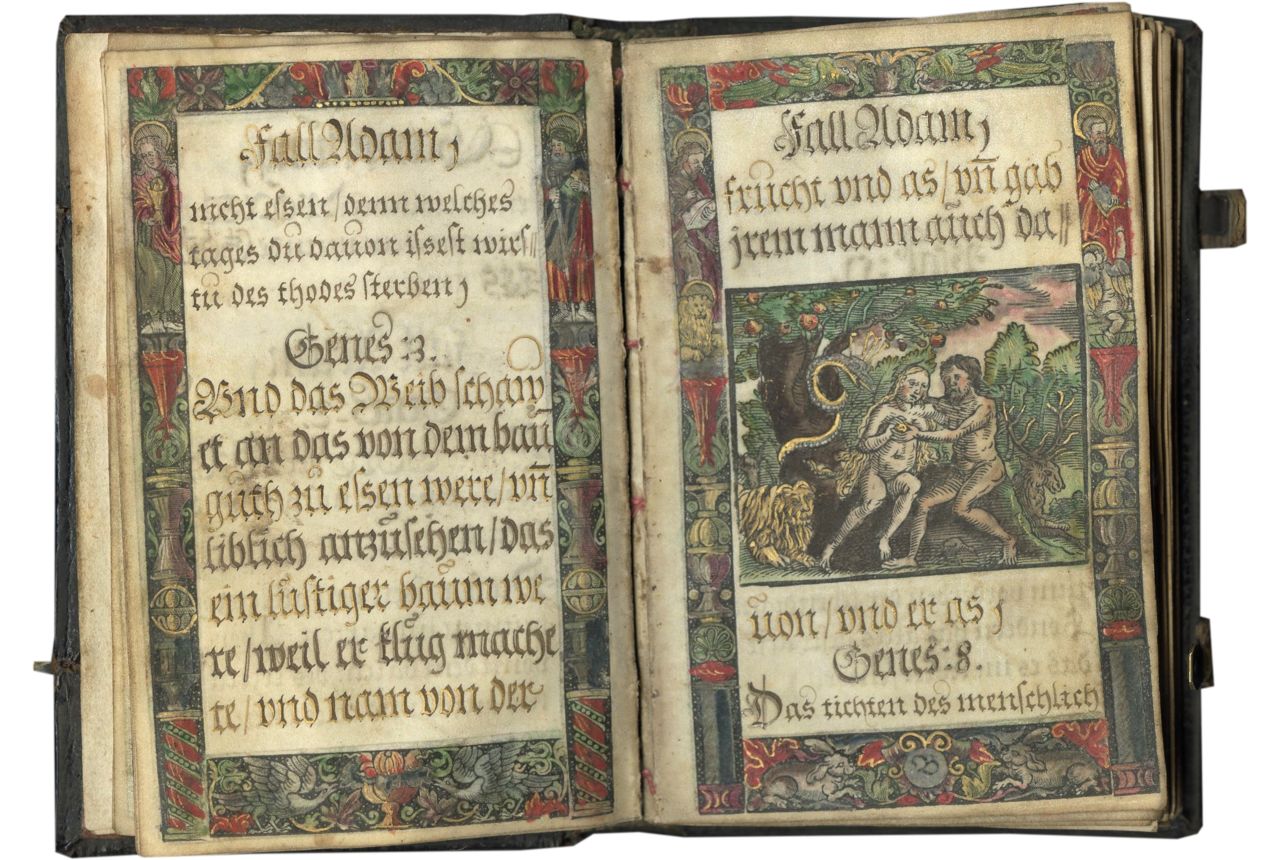 Fall Adam,
nicht essen/denn welches
tages dü daüon issest wirs//
tü des thodes sterben,
Genes: 3.
Vnd das Weib schaw
et an das von dem baū
güth zü essen were/vn̄
liblich anzüsehen/das
ein lüstiger baüm we
re/weil er klüg mache
te/vnd nam von der
Fall Adam,
frücht vnd as/vn̄ gab
jrem mann aüch da//
üon/vnd er as,
Genes: 8.
Das tichten des menschlich